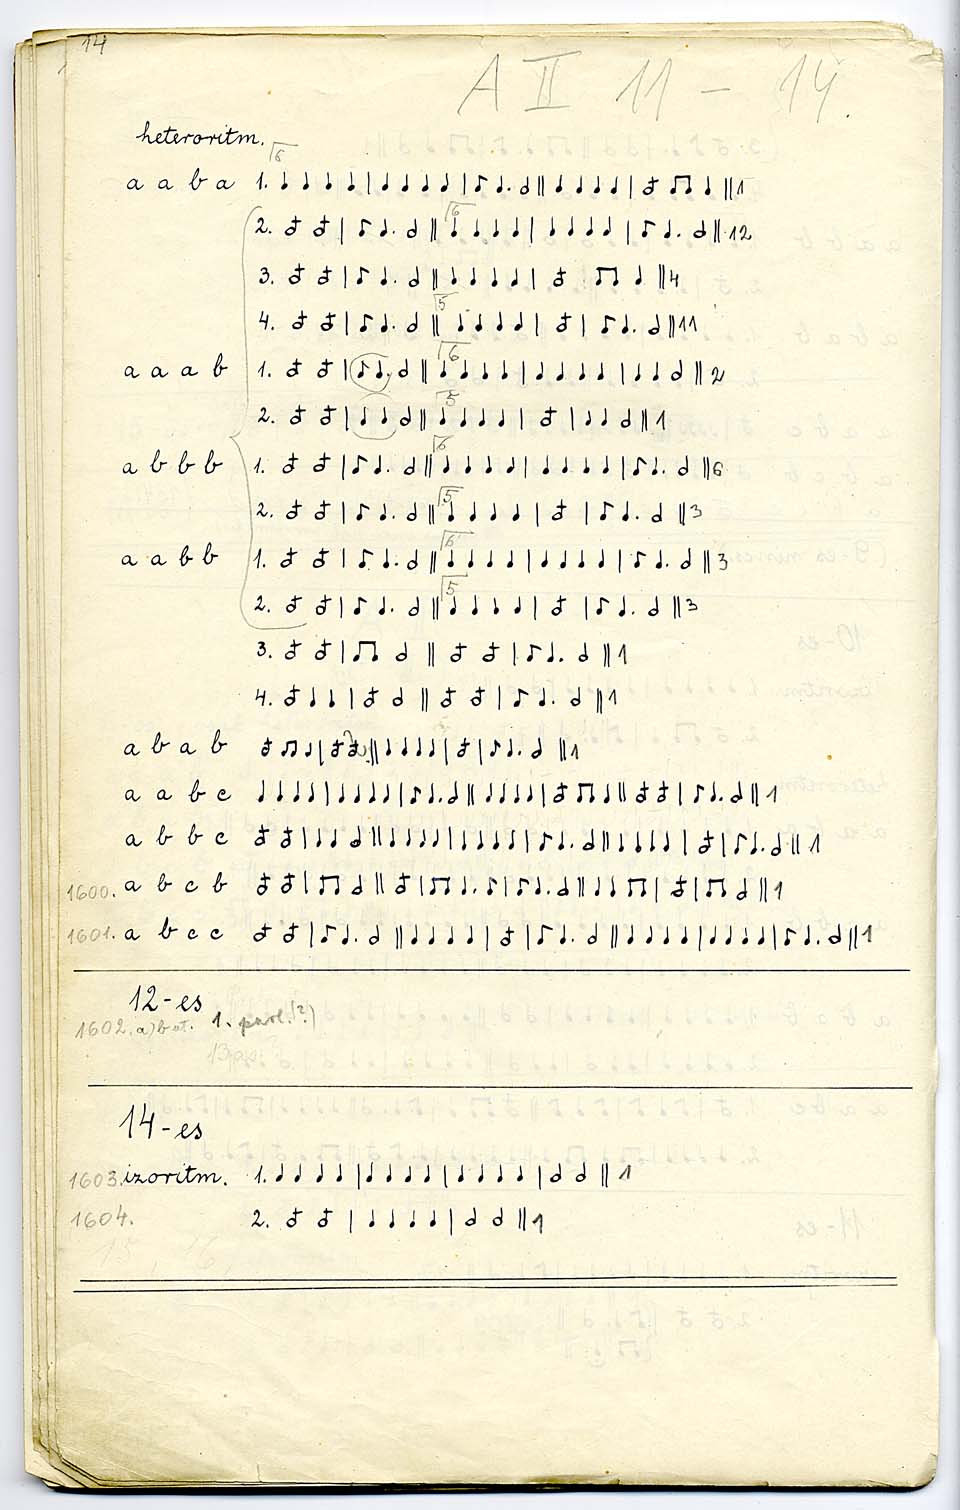 14
A II 11 - 14.
heteroritm.
6
a a b a 1. ♩ ♩ ♩ ♩ | ♩ ♩ ♩ ♩ | ♪ ♩. 𝅗𝅥 || ♩ ♩ ♩ ♩ | ♫ ♩ || 1
2. | ♪ ♩. 𝅗𝅥 || 6 ♩ ♩ ♩ ♩ | ♩ ♩ ♩ ♩ | ♪ ♩. 𝅗𝅥 || 12
3. | ♪ ♩. 𝅗𝅥 || ♩ ♩ ♩ ♩ | ♫ ♩ || 4
4. | ♪ ♩. 𝅗𝅥 || 5 ♩ ♩ ♩ ♩ | | ♪ ♩. 𝅗𝅥 || 11
a a a b 1. | ♪ ♩. 𝅗𝅥 || 6 ♩ ♩ ♩ ♩ | ♩ ♩ ♩ ♩ | ♩ ♩ 𝅗𝅥 || 2
2. | ♩ ♩ 𝅗𝅥 || 5 ♩ ♩ ♩ ♩ | | ♩ ♩ 𝅗𝅥 || 1
a b b b 1. | ♪ ♩. 𝅗𝅥 || 6 ♩ ♩ ♩ ♩ | ♩ ♩ ♩ ♩ | ♪ ♩. 𝅗𝅥 || 6
2. | ♪ ♩. 𝅗𝅥 || 5 ♩ ♩ ♩ ♩ | | ♪ ♩. 𝅗𝅥 || 3
a a b b 1. | ♪ ♩. 𝅗𝅥 || 6 ♩ ♩ ♩ ♩ | ♩ ♩ ♩ ♩ | ♪ ♩. 𝅗𝅥 || 3
2. | ♪ ♩. 𝅗𝅥 || 5 ♩ ♩ ♩ ♩ | | ♪ ♩. 𝅗𝅥 || 3
3. | ♫ 𝅗𝅥 || | ♪ ♩. 𝅗𝅥 || 1
4. ♩ ♩ | 𝅗𝅥 || | ♪ ♩. 𝅗𝅥 || 1
a b a b ♫ ♩ | || ♩ ♩ ♩ ♩ | | ♪ ♩. 𝅗𝅥 || 1
a a b c ♩ ♩ ♩ ♩ | ♩ ♩ ♩ ♩ | ♪ ♩. 𝅗𝅥 || ♩ ♩ ♩ ♩ | ♫ ♩ || | ♪ ♩. 𝅗𝅥 || 1
a b b c | ♩ ♩ 𝅗𝅥 || ♩ ♩ ♩ ♩ | ♩ ♩ ♩ ♩ | ♪ ♩. 𝅗𝅥 || ♩ ♩ ♩ ♩ | | ♪ ♩. 𝅗𝅥 || 1
1600. a b c b | ♫ 𝅗𝅥 || | ♫ ♩. ♪ | ♪ ♩. 𝅗𝅥 || ♩ ♩ ♫ | | ♫ 𝅗𝅥 || 1
1601. a b c c | ♪ ♩. 𝅗𝅥 || ♩ ♩ ♩ ♩ | | ♪ ♩. 𝅗𝅥 || ♩ ♩ ♩ ♩ | ♩ ♩ ♩ ♩ | ♪ ♩. 𝅗𝅥 || 1
12-es
1602. 1. parl. (?)
14-es
1603. izoritm. 1. ♩ ♩ ♩ ♩ | ♩ ♩ ♩ ♩ | ♩ ♩ ♩ ♩ | 𝅗𝅥 𝅗𝅥 || 1
1604. 2. | ♩ ♩ ♩ ♩ | 𝅗𝅥 𝅗𝅥 || 1
15, 16,